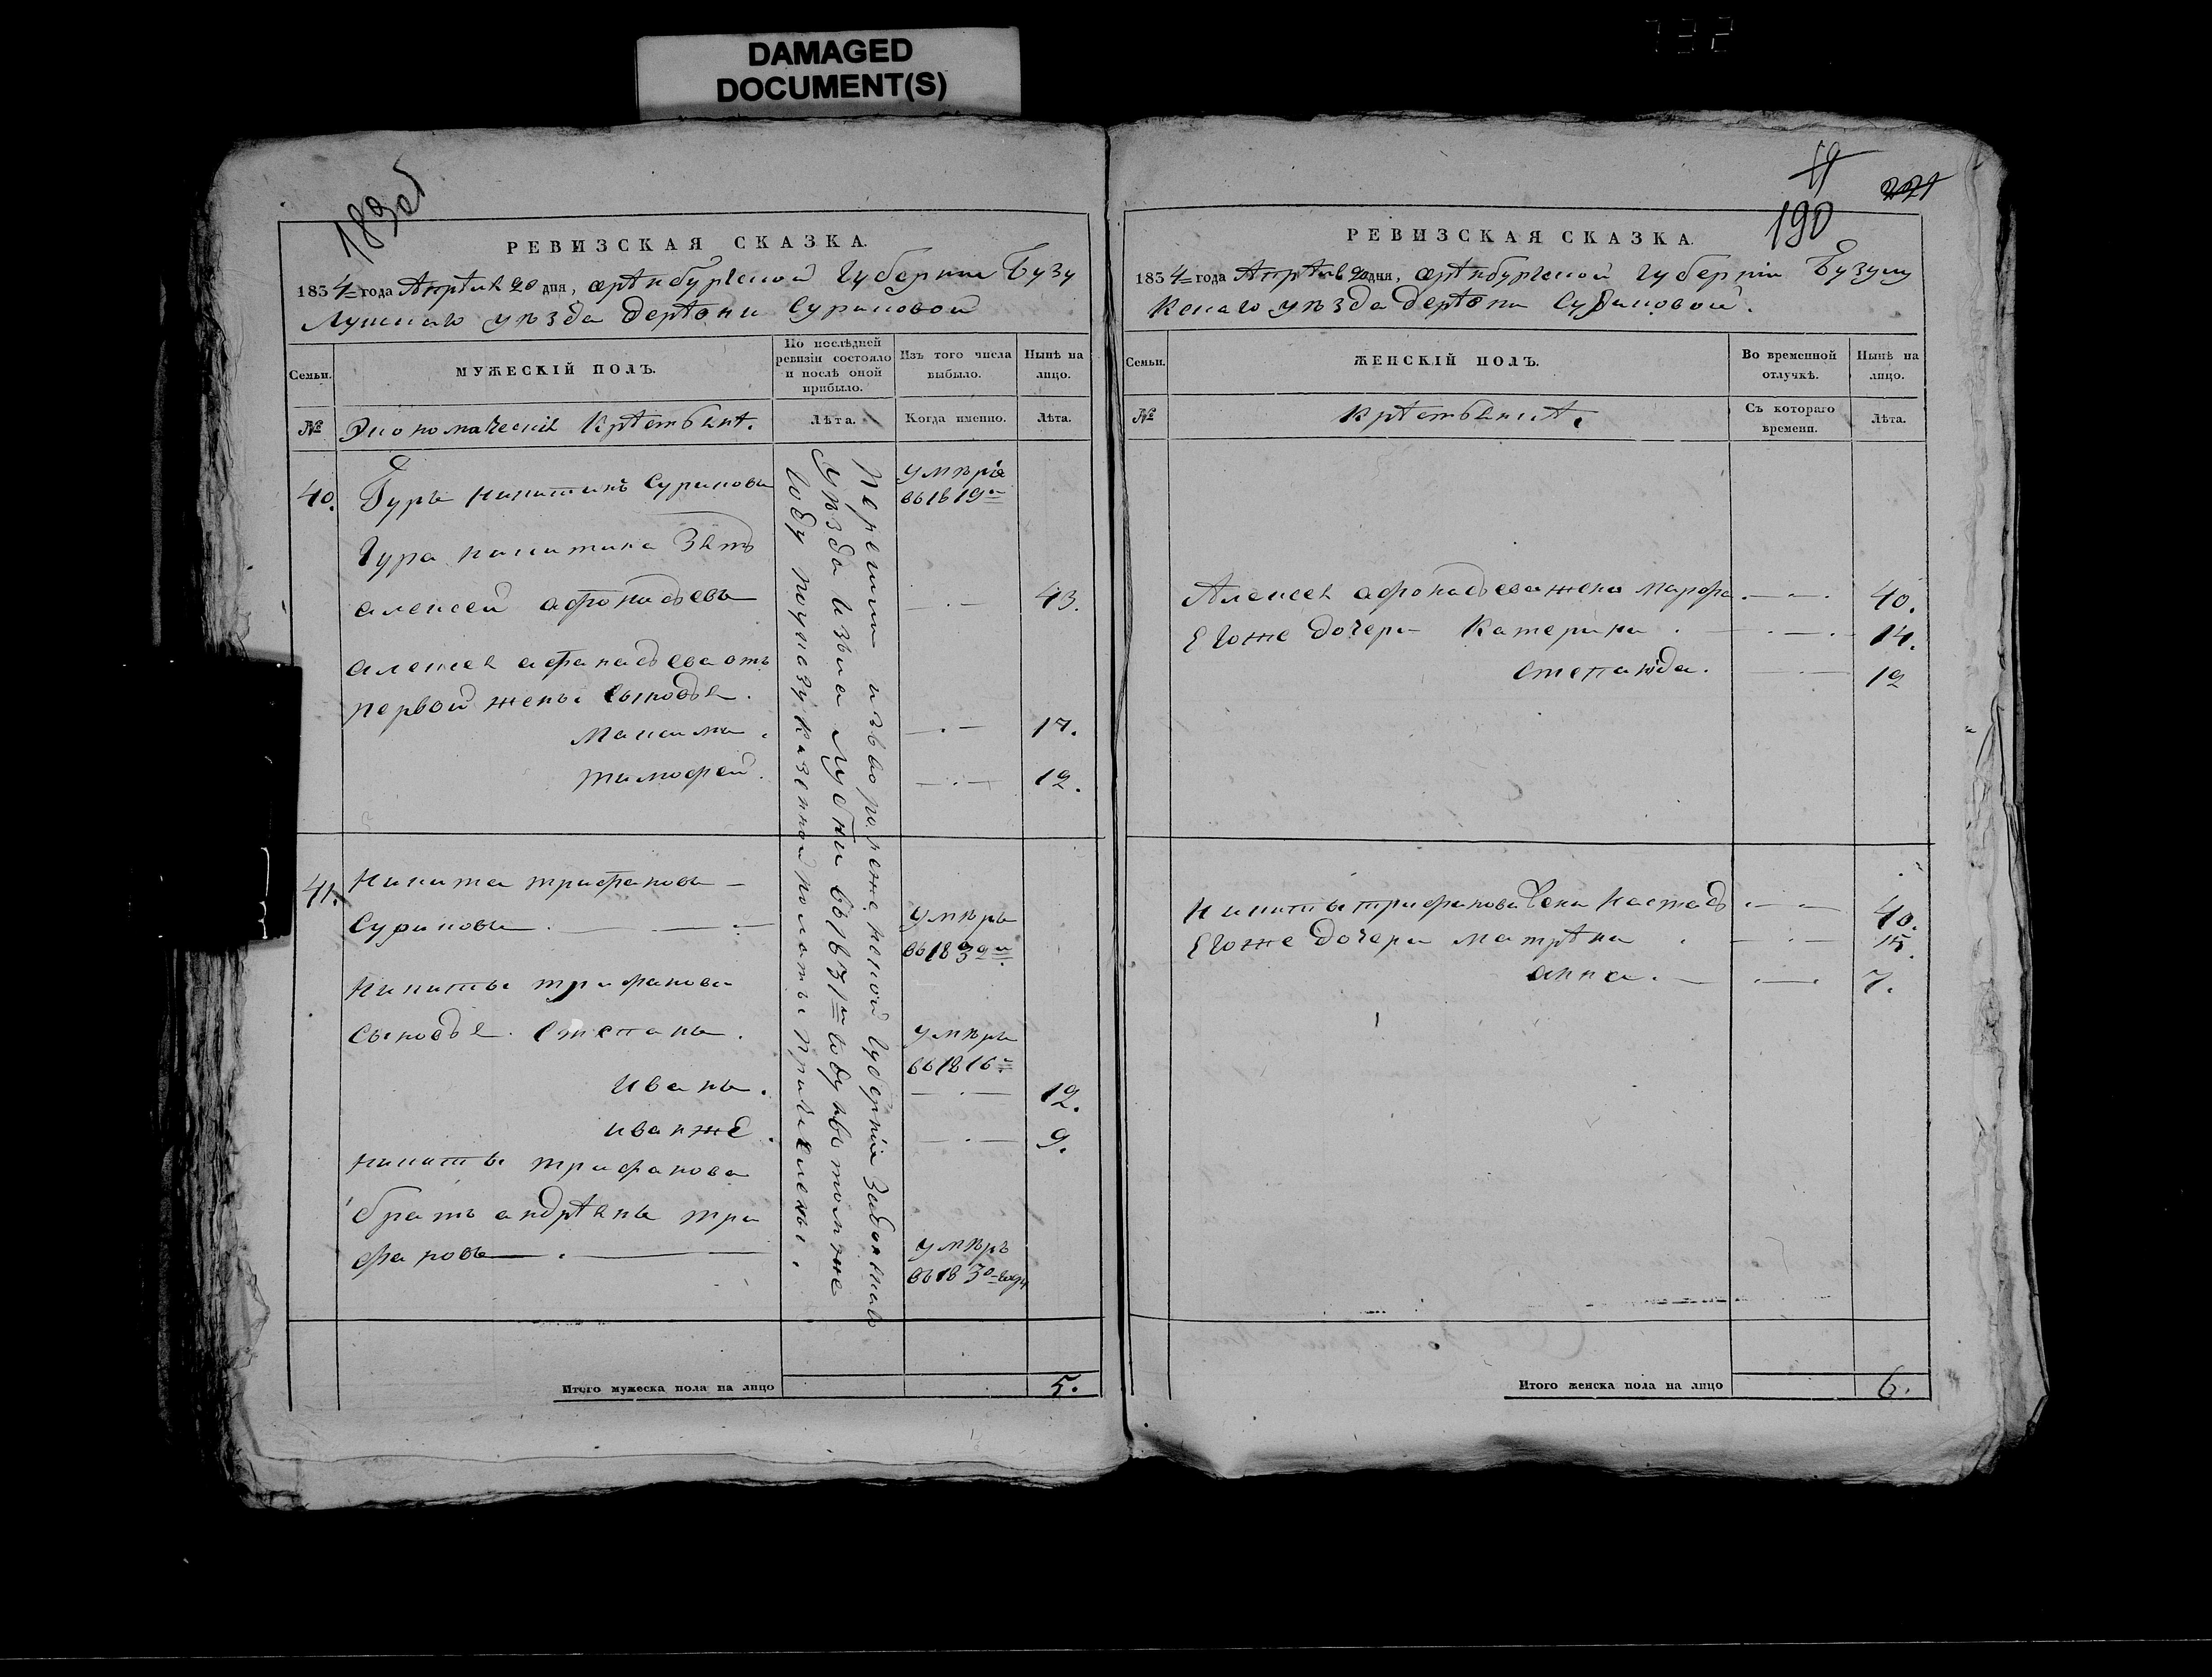 DAMAGED
DOCUMENT(S)
732
189об
РЕВИЗСКАЯ СКАЗКА.
1834 года Апрѣля 20 дня, орѣнбургской губернии Бузу
Лускаго уѣзда дерѣвни Суриковой
Семьи.
МУЖЕСКІЙ ПОЛЪ.
По послѣдней
ревизіи состояло
и послѣ оной
прибыло.
Изъ того числа
выбыло.
Нынѣ на
лицо.
№
Экономическия Крѣстьянѣ.
Лѣта.
Когда именно.
Лѣта.
Перешли изъ воронежской губерніи
уѣзда въ 1831м году въ томъ же
году по указу казенной полаты причислены.
40.
Гуръ никитинъ Суриковъ
умѣръ
въ 1819м
Гура никитина Зять
алексей афонасьевъ
43.
алексея афанасьева отъ
первой жены Сыновья.
максимъ.
17.
тимофей.
12.
41.
Никита трифановъ
Суриковъ.
умѣръ
въ 1832м
Никиты трифанова
Сыновья. Степанъ.
умѣръ
въ 1816м
Иванъ.
12.
иванже.
9.
никиты трифанова
братъ андрѣянъ три
фановъ
умѣръ
въ 1830 году
Итого мужеска пола на лицо
5.
19
221
190
РЕВИЗСКАЯ СКАЗКА.
1834 года Апрѣля 20 дня, орѣнбургской губерніи Бузулу
кскаго уѣзда дерѣвни Суриковой.
Семьи.
ЖЕНСКІЙ ПОЛЪ.
Во временной
отлучкѣ.
Нынѣ на
лицо.
№
Крѣстьянкѣ.
Съ котораго
времени.
Лѣта.
Алексея афонасьева жена марфа.
40.
Егоже дочери Катерина.
14.
степанида.
12
Никиты трифанова жена настасья
40.
Егоже дочери матрѣна
15.
анна.
7.
Итого женска пола на лицо
6.